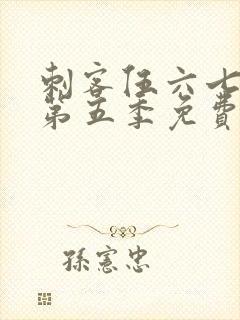 刺客伍六七
第五季免費
孫憲忠